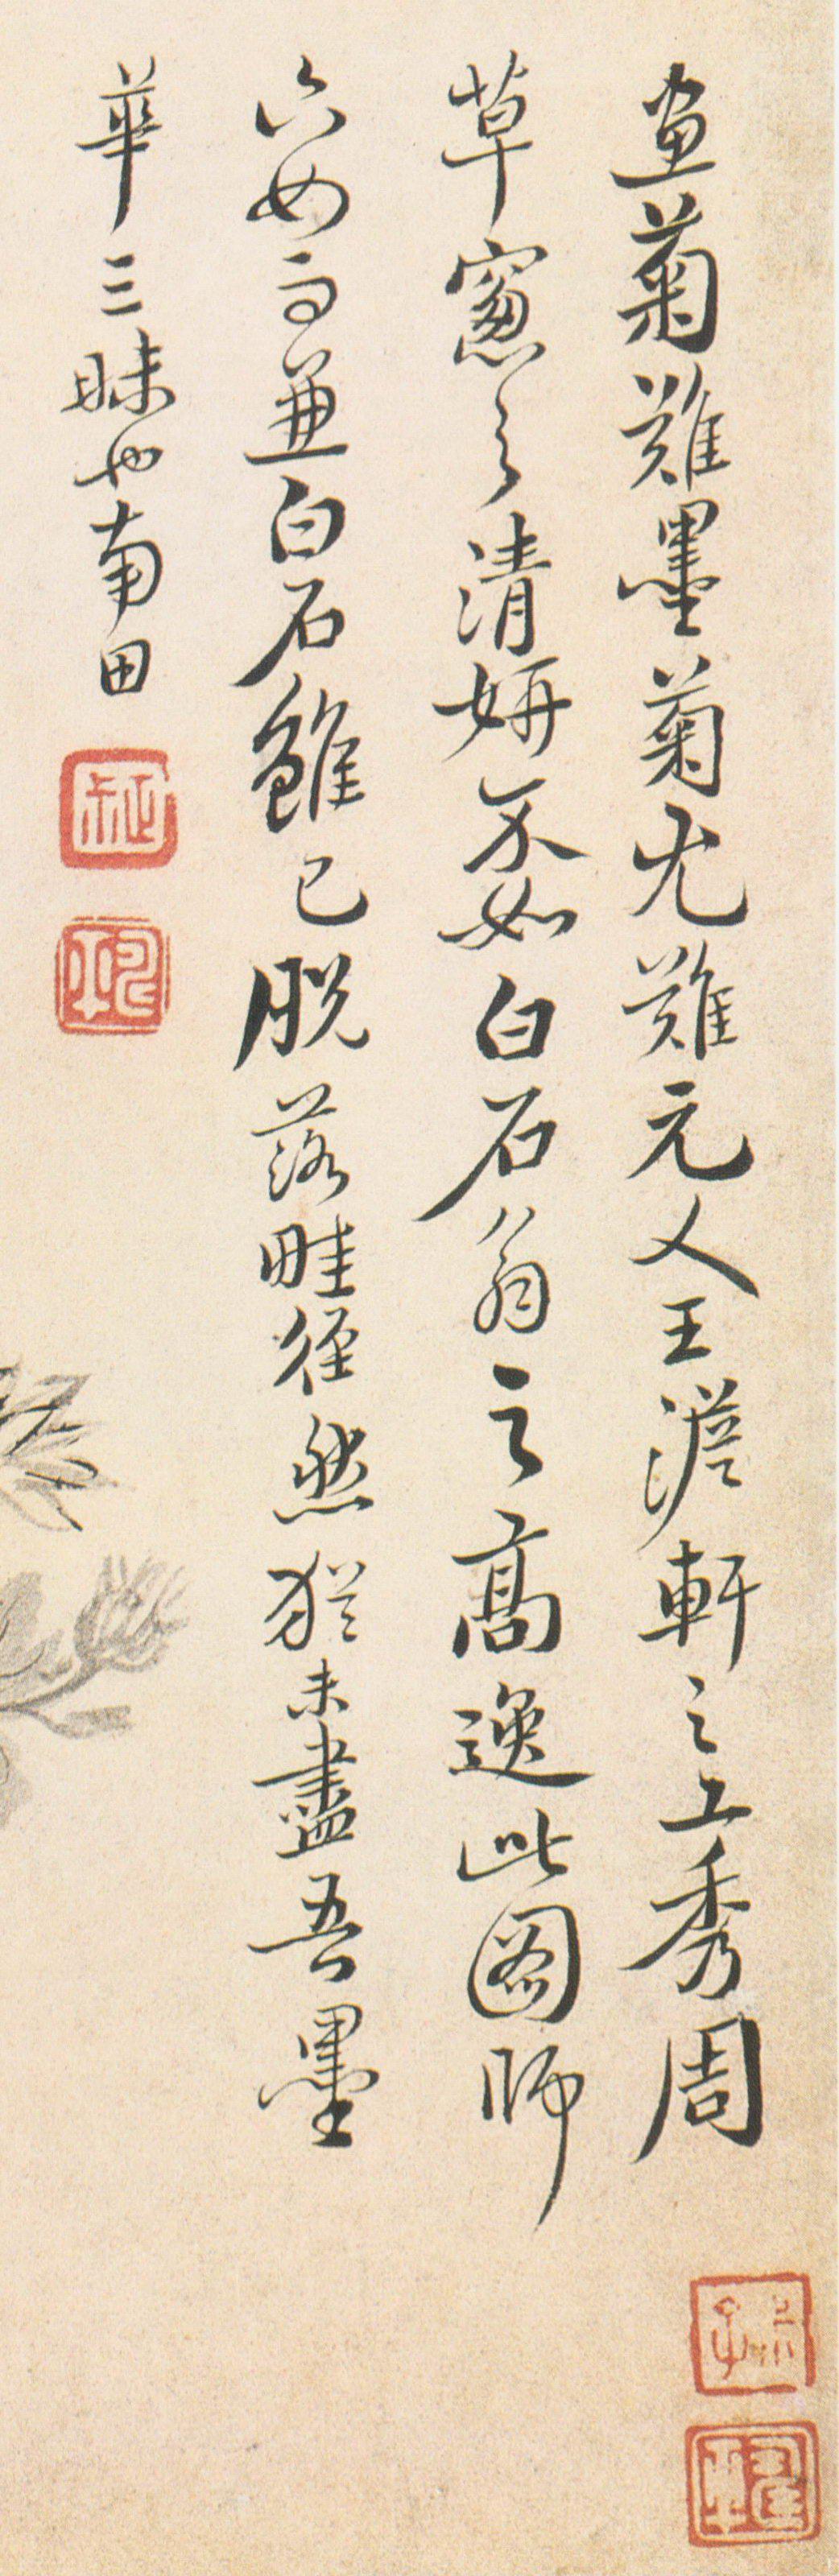 畫菊難墨菊尤難元人王澹軒之工秀周
草窻之清妍不如白石翁之高逸此圖師
六如而兼白石雖已脫落畦徑然猶未盡吾墨
華三昧也南田